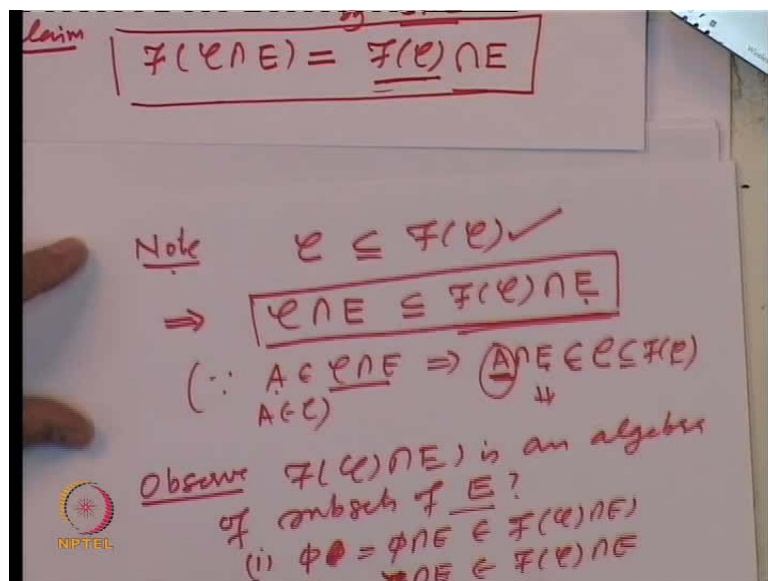 Claim
F(C ∩ E) = F(C) ∩ E
Note C ⊆ F(C) ✓
⇒ C ∩ E ⊆ F(C) ∩ E
(∵ A ∈ C ∩ E ⇒ A ∩ E ∈ C ⊆ F(C)
A ∈ C) ⇓
Observe F(C) ∩ E) is an algebra
of subsets of E ?
(i) ϕ = ϕ ∩ E ∈ F(C) ∩ E)
∩ E ∈ F(C) ∩ E
NPTEL